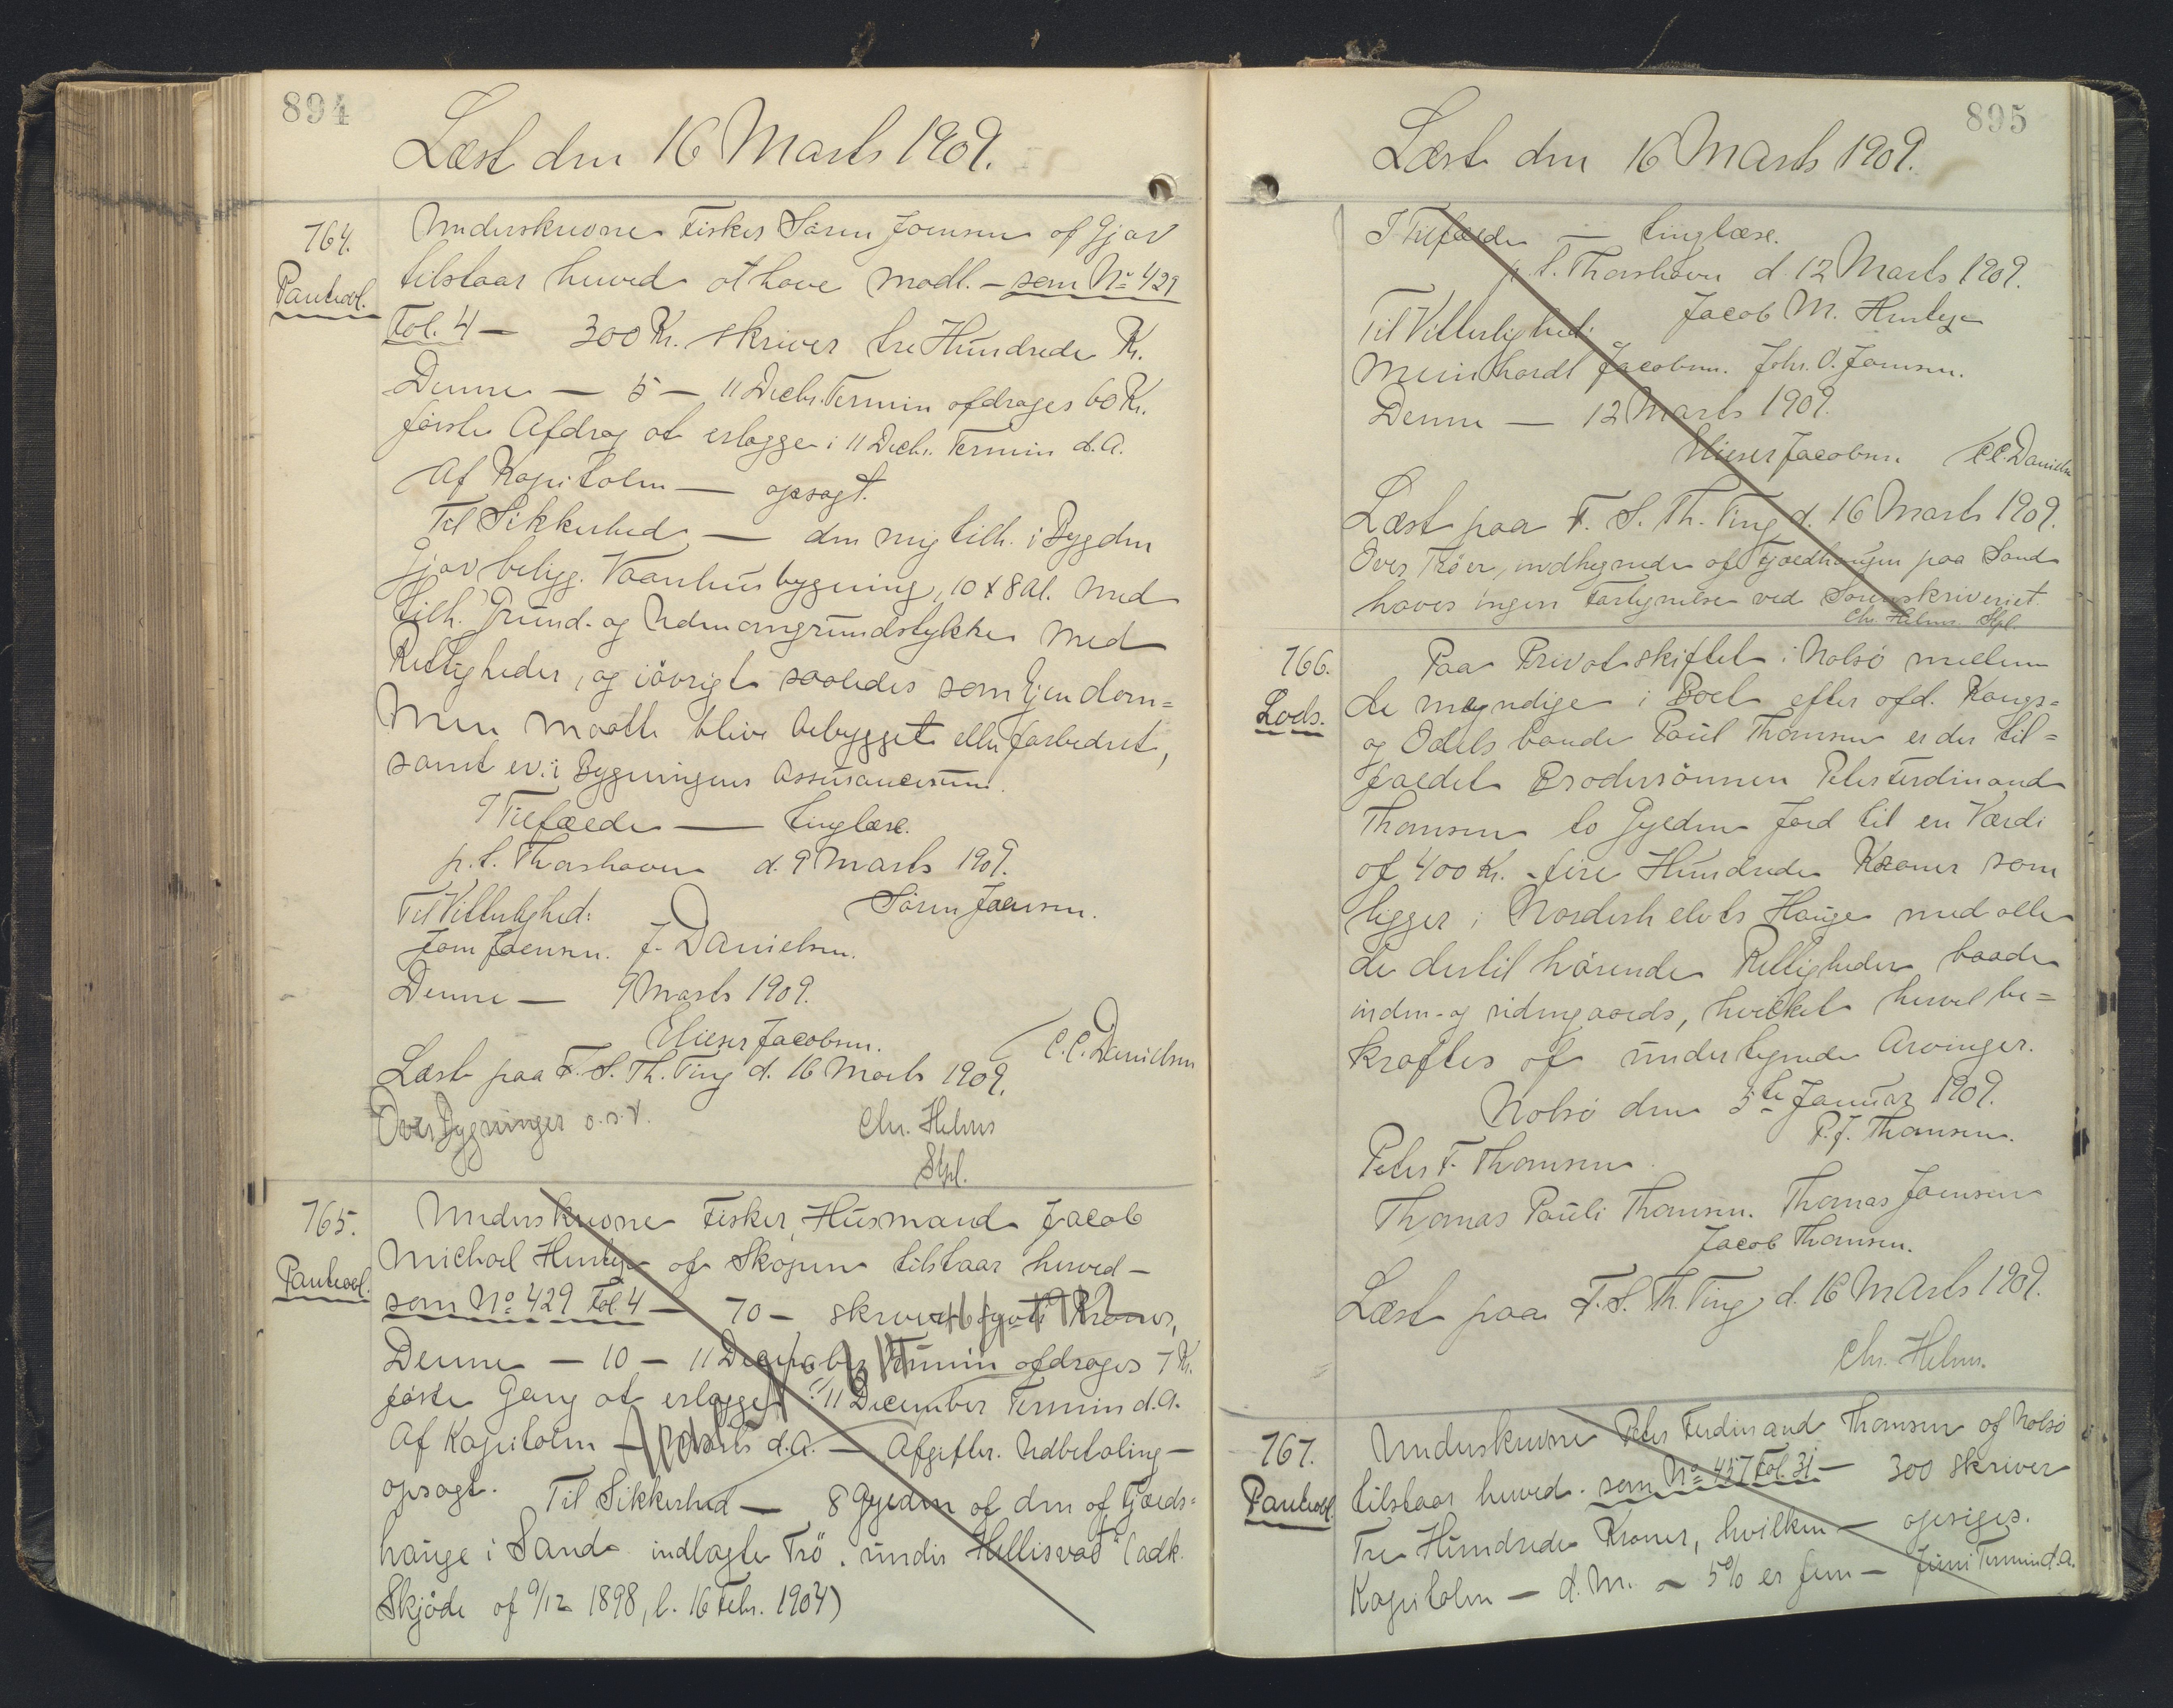 894
Læst den 16 Marts 1909.
764.
Panteobl.
Underskrevne Fisker Sören Joensen af Gjov
tilstaar herved at have modt. - som No 429
Fol. 4 — 300 Kr. skriver tre Hundrede Kr.
Denne — 5 — 11 Decbr. Termin afdrages 60 Kr.
förste Afdrag at erlægge i 11 Decbr. Termin d.A.
Af Kapitalen — opsagt.
Til Sikkerhed — den mig tilh. i Bygden
Gjov beligg. Vaaningshusbygning, 10 x 8 Al. med
tilh. Grund- og Udenomsgrundstykke med
Rettigheder, og iövrigt saaledes som Ejendom=
men maatte blive bebygget eller forbedret,
samt ev. i Bygningens Assurancesum.
I Tilfælde — tinglæse.
p.t. Thorshavn d. 9 Marts 1909.
Til Vitterlighed: Sören Joensen.
Joen Joensen. J. Danielsen.
Denne — 9 Marts 1909.
Elieser Jacobsen. C.C. Danielsen
Læst paa F. S. Th. Ting d. 16 Marts 1909.
Over Bygninger o.s.v. Chr. Helms
Stpl.
765.
Panteobl.
Underskrevne Fisker, Husmand Jacob
Michael Hentze af Skopen tilstaar herved —
som No 429 Fol. 4 — 70 — skriver Kroner,
Denne — 10 — 11 December Termin afdrages 7 Kr.
förste Gang at erlægge i 11 December Termin d.A.
Af Kapitalen — Marts d.A. — Afgifter. Udbetaling —
opsagt. Til Sikkerhed — 8 Gylden af den af Fjæds=
hauge i Sand indlagte Trö "undir Hellisvað" (adk.
Skjöde af 9/12 1898, l. 16 Febr. 1904)
895
Læst den 16 Marts 1909.
I Tilfælde — tinglæse.
p.t. Thorshavn d. 12 Marts 1909.
Til Vitterlighed: Jacob M. Hentze
Meinhardt Jacobsen. Johs. O. Joensen.
Denne — 12 Marts 1909.
Elieser Jacobsen. C.C. Danielsen
Læst paa F. S. Th. Ting d. 16 Marts 1909.
Over Tröer, indhegnede af Fjædhaugen paa Sand
haves ingen Fortegnelse ved Sorenskriveriet.
Chr. Helms. Stpl.
766.
Lods.
Paa Privatskiftet i Nolsö mellem
de myndige i Boet efter afd. Kongs=
og Odelsbonde Poul Thomsen er der til=
faldet Brodersönnen Peter Ferdinand
Thomsen to Gylden Jord til en Værdi
af 400 Kr. - fire Hundrede Kroner som
ligger i Hauge med alle
de dertil hörende Rettigheder baade
inden- og udengaards, hvilket herved be=
kræftes af undertegnede Arvinger.
Nolsö den 5te Januar 1909.
P.J. Thomsen.
Peter F. Thomsen
Thomas Pauli Thomsen. Thomas Joensen
Jacob Thomsen.
Læst paa F. S. Th. Ting d. 16 Marts 1909.
Chr. Helms.
767.
Panteobl.
Underskrevne Peter Ferdinand Thomsen af Nolsö
tilstaar herved. som No 457 Fol. 31 — 300 skriver
Tre Hundrede Kroner, hvilken — opsiges.
Kapitalen — d.M. a 5% er fem — Juni Termin d.A.